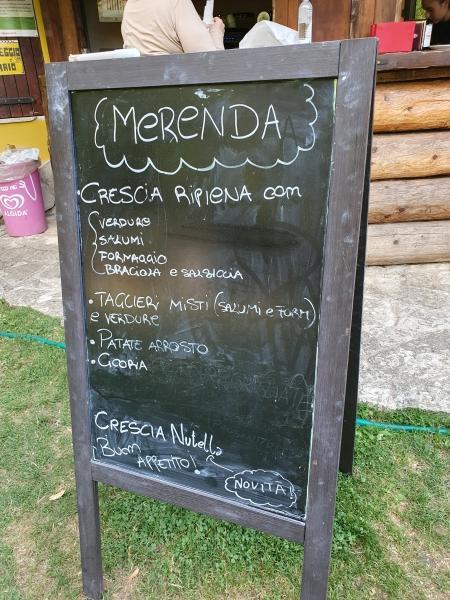 MERENDA
• CRESCIA RIPIENA com
VERDURE
SALUMI
FORMAGGIO
BRACIOLA e SALSICCIA
• TAGLIERI MISTI (SALUMI e FORM)
e VERDURE
• PATATE ARROSTO
• CICORIA
CRESCIA Nutella
BUOM APPETITO!
NOVITÀ!
ALGIDA